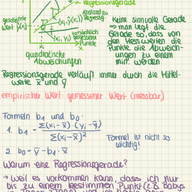 Regressionsgerade
gesuchte
Wert (ŷ)
(xᵢ,yᵢ)
keine sinnvolle Gerade
→ man legt die
Gerade so, dass von
den Messwerten die
Punkte die Abweich-
ungen zu einem
min. werden
quadratische
Abweichungen
Regressionsgerade verläuft immer durch die Mittel-
werte x̄ und ȳ
empirischer Wert gemessener Wert (messbar)
Formeln b₁ und b₀:
1. b₁ = Σ(xᵢ-x̄)(yᵢ-ȳ)
Σ(xᵢ-x̄)²
Formel ist nicht so
wichtig!
2. b₀ = ȳ - b₁ · x̄
Warum eine Regressionsgerade?
→ weil es vorkommen kann, dass ich nur
bis zu einem bestimmten Punkt